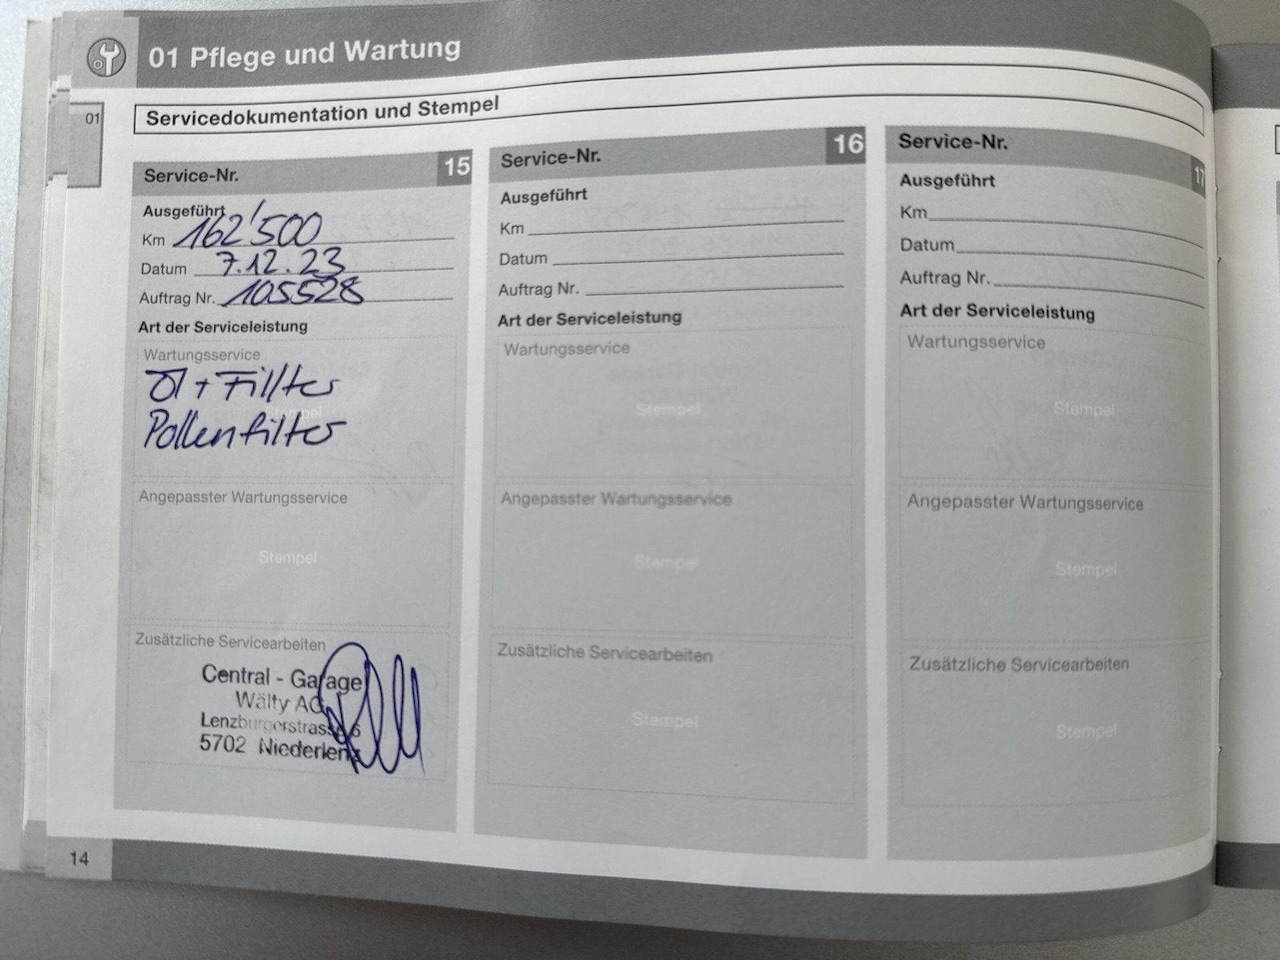 01 Pflege und Wartung
01
Servicedokumentation und Stempel
Service-Nr. 15
Ausgeführt
Km 162'500
Datum 7.12.23
Auftrag Nr. 105528
Art der Serviceleistung
Wartungsservice
Öl + Fillter
Stempel
Pollenfilter
Angepasster Wartungsservice
Stempel
Zusätzliche Servicearbeiten
Central - Garage
Wälty AG
Lenzburgerstrasse 6
5702 Niederlenz
Service-Nr. 16
Ausgeführt
Km
Datum
Auftrag Nr.
Art der Serviceleistung
Wartungsservice
Stempel
Angepasster Wartungsservice
Stempel
Zusätzliche Servicearbeiten
Stempel
Service-Nr. 17
Ausgeführt
Km
Datum
Auftrag Nr.
Art der Serviceleistung
Wartungsservice
Stempel
Angepasster Wartungsservice
Stempel
Zusätzliche Servicearbeiten
Stempel
14